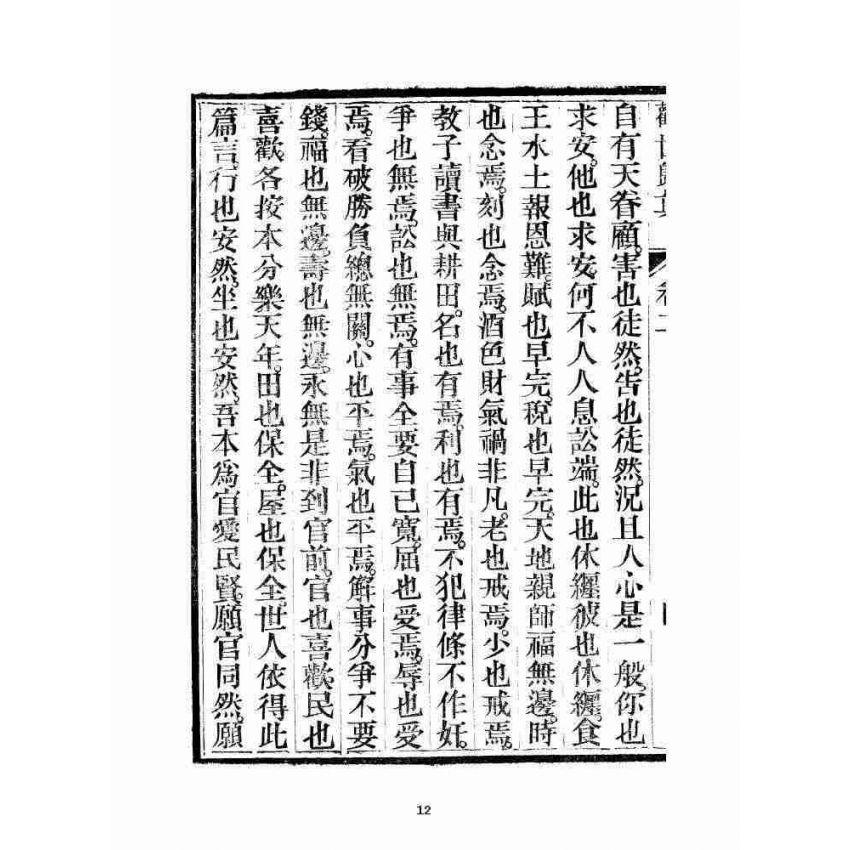 卷二
自有天眷顧。害也徒然。告也徒然。況且人心是一般。你也
求安。他也求安。何不人人息訟端。此也休纏。彼也休纏。食
王水土報恩難。賦也早完。稅也早完。天地親師福無邊。時
也念焉。刻也念焉。酒色財氣禍非凡。老也戒焉。少也戒焉。
教子讀書與耕田。名也有焉。利也有焉。不犯律條不作奸。
爭也無焉。訟也無焉。有事全要自己寬。屈也受焉。辱也受
焉。看破勝負總無關。心也平焉。氣也平焉。解事分爭不要
錢。福也無邊。壽也無邊。永無是非到官前。官也喜歡民也
喜歡。各按本分樂天年。田也保全。屋也保全。世人依得此
篇言。行也安然。坐也安然。吾本爲官愛民賢。願官同然。願
12